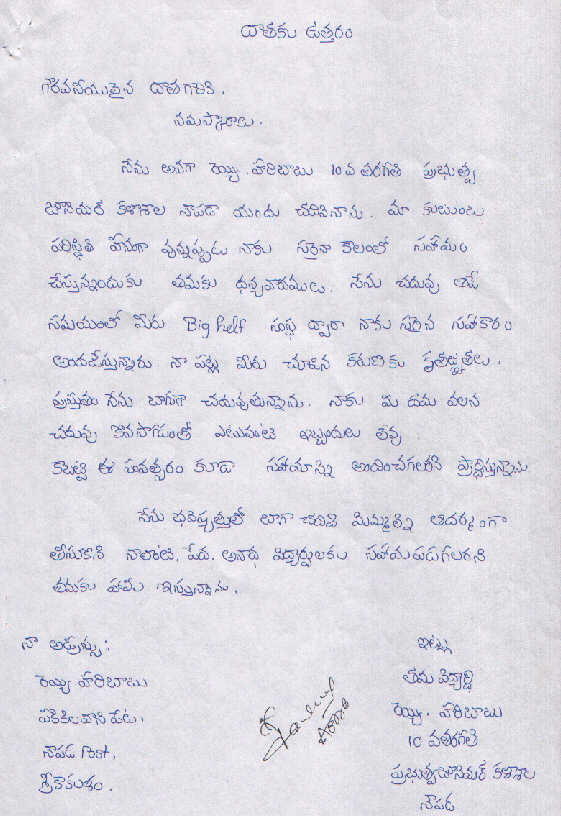 దాతకు ఉత్తరం
గౌరవనీయులైన దాతగారికి.
నమస్కారాలు.
నేను అనగా రెయ్యి. హరిబాబు 10వ తరగతి ప్రభుత్వ
జూనియర్ కళాశాల నౌపడా యందు చదివినాను. మా కుటుంబ
పరిస్థితి హీనంగా వున్నప్పుడు నాకు సరైన కాలంలో సహాయం
చేస్తున్నందుకు తమకు ధన్యవాదములు. నేను చదువు
సమయంలో మీరు Big helf సంస్థ ద్వారా నాకు సరైన సహకారం
అందజేస్తున్నారు నా పట్ల మీరు చూపిన కరుణకు కృతజ్ఞతలు.
ప్రస్తుతం నేను బాగుగా చదువుతున్నాను. నాకు మీ దయ వలన
చదువు కొనసాగడంతో ఎటువంటి ఇబ్బందులు లేవు
కాబట్టి ఈ సంవత్సరం కూడా సహాయాన్ని అందించగలరని ప్రార్థిస్తున్నాను
నేను భవిష్యత్తులో బాగా చదివి మిమ్మల్ని ఆదర్శంగా
తీసుకొని నాలాంటి పేద. అనాథ విద్యార్థులకు సహాయపడగలనని
తమకు హామీ ఇస్తున్నాను.
నా అడ్రస్సు:
రెయ్యి హరిబాబు
నౌపడ Post,
శ్రీకాకుళం.
ఇట్లు
తమ విద్యార్థి
రెయ్యి. హరిబాబు
10 వ తరగతి
ప్రభుత్వ జూనియర్ కళాశాల
నౌపడ